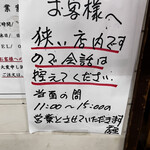 お客様へ
狭い店内です
ので会話は
控えてください。
当面の間
11:00〜15:00の
営業とさせていただきます
店主
営業